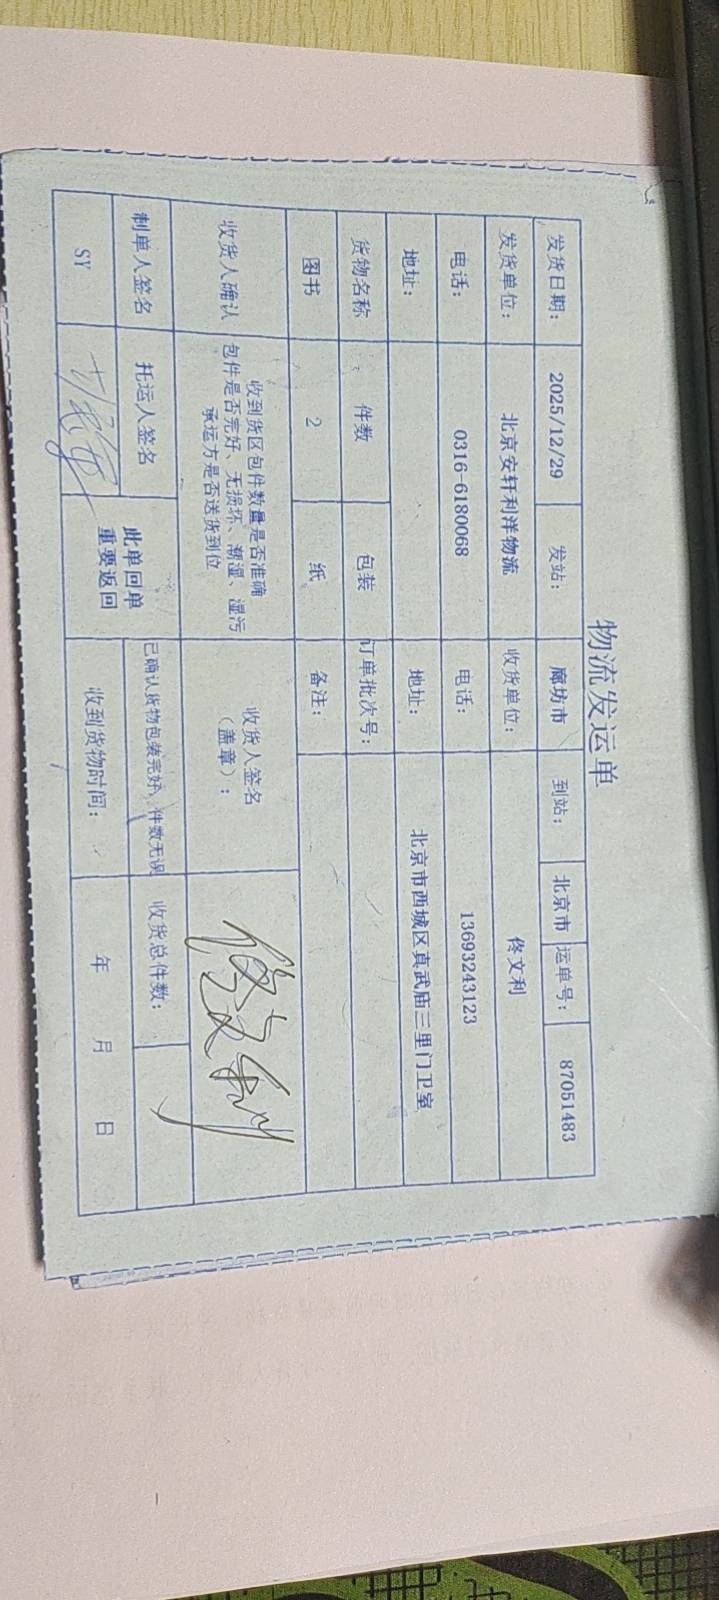 物流发运单
发货日期: 2025/12/29 发站: 廊坊市 到站: 北京市 运单号: 87051483
发货单位: 北京安轩利洋物流 收货单位: 佟文利
电话: 0316-6180068 电话: 13693243123
地址: 地址: 北京市西城区真武庙三里门卫室
货物名称 件数 包装 订单批次号:
图书 2 纸 备注:
收货人确认 收到货区包件数量是否准确
包件是否完好、无损坏、潮湿、湿污
承运方是否送货到位
收货人签名
(盖章):
佟文利
制单人签名 托运人签名 此单回单
重要返回
已确认货物包装完好、件数无误 收货总件数:
SY 收到货物时间: 年 月 日